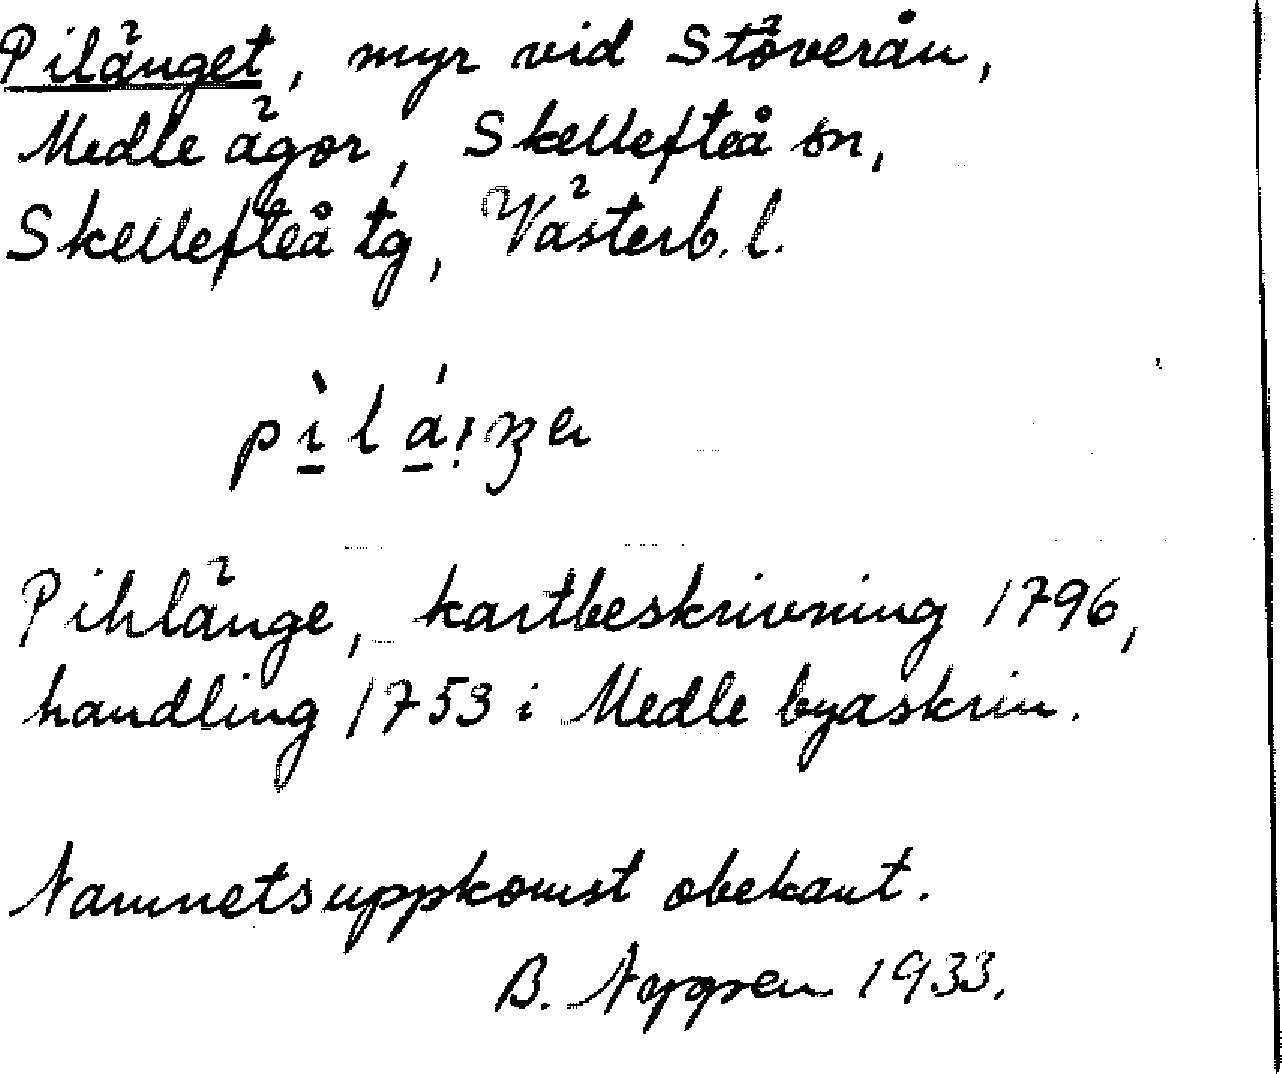 Pilänget, myr vid Stöverån,
Medle ägor, Skellefteå sn,
Skellefteå tg, Västerb. l.
Pihlänge, kartbeskrivning 1796,
handling 1753 i Medle byaskrin.
Namnets uppkomst obekant.
B. Nygren 1933.